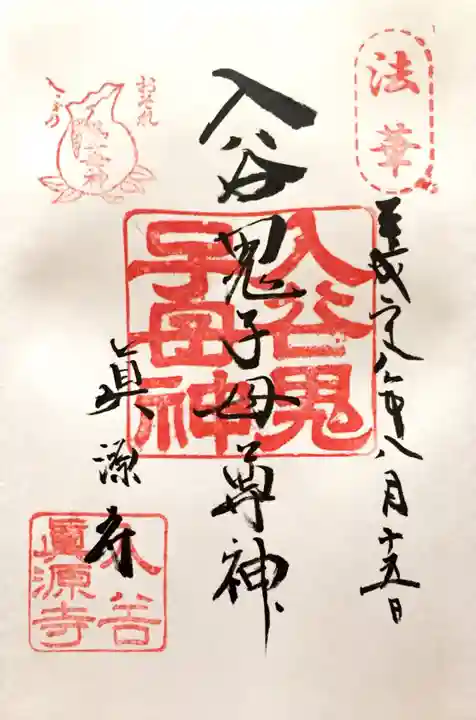 法華
平成廿八年八月十五日
入谷鬼子母尊神
入谷鬼
子母神
おそれ
入谷の
鬼子母神
眞源寺
眞源寺